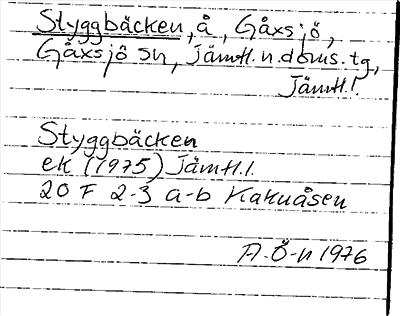 Styggbäcken, å, Gåxsjö,
Gåxsjö sn, Jämtl. n. doms. tg,
Jämtl.l.
Styggbäcken
ek (1975) Jämtl.l.
20 F 2-3 a-b Kakuåsen
A. Ö-n 1976